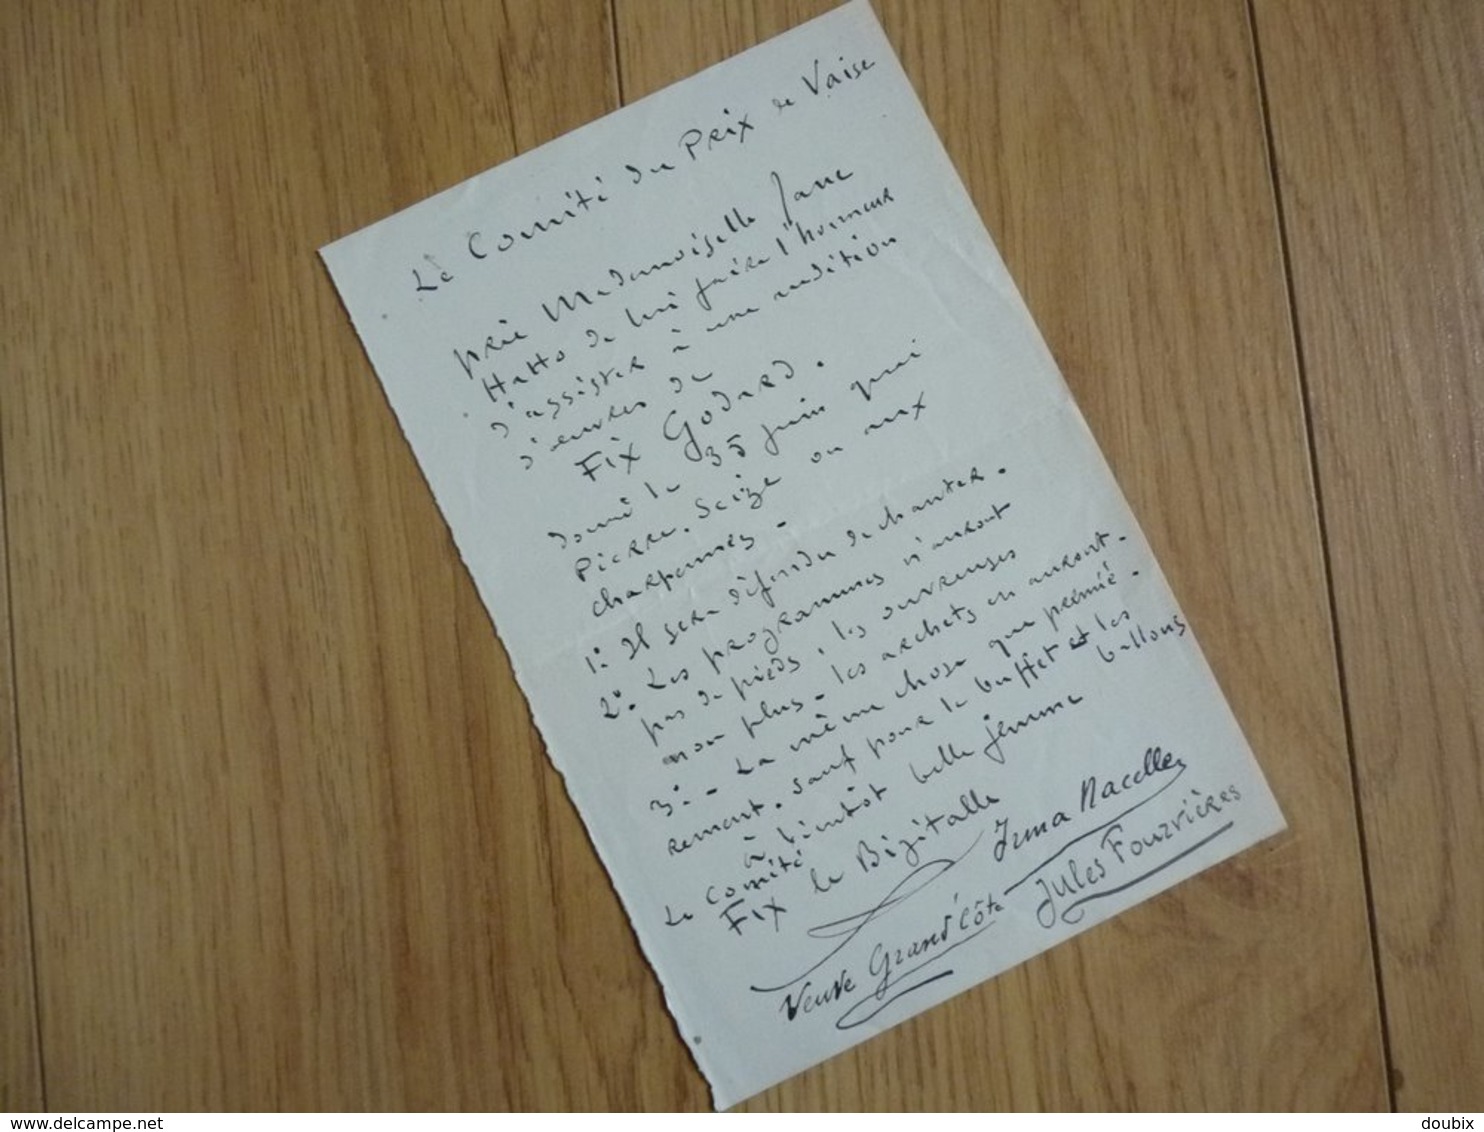 Le Comité du Prix de Vaise
prie Mademoiselle Jane
Hatto de lui faire l'honneur
d'assister à une audition
d'œuvres de
Fix Godard.
donné le 35 juin quai
Pierre-Seize ou aux
charpennes.-
1° Il sera défendu de chanter.
2°. Les programmes n'auront
pas de pieds, les ouvreuses
non plus - les archets en auront.
3°.- La même chose que premiè.
rement. sauf pour le buffet et les
ballons
à bientôt belle jeunne
Le Comité
Fix le Bizitalle
Irma Nacelle
Veuve Grand'Côte
Jules Fourvières
delcampe.net
doubix